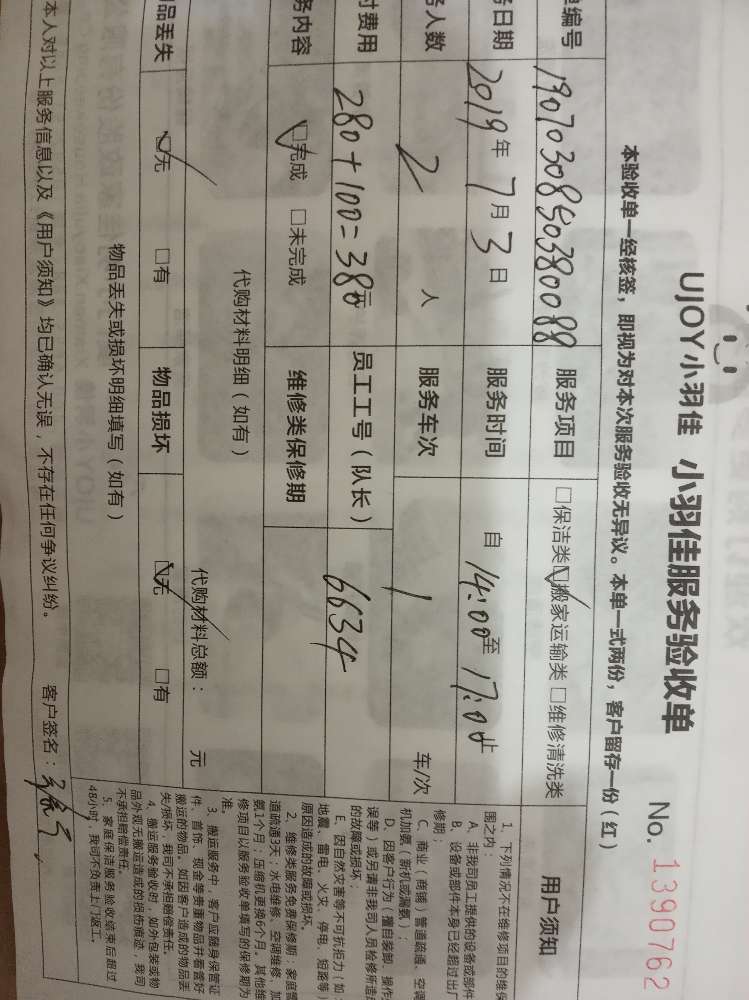 UJOY小羽佳 小羽佳服务验收单
No. 1390762
本验收单一经核签，即视为对本次服务验收无异议。本单一式两份，客户留存一份（红）
单编号 1907030850380088 服务项目 □保洁类 ☑搬家运输类 □维修清洗类
务日期 2019年7月3日 服务时间 自 14:00 至 17:00 止
务人数 2 人 服务车次 1 车/次
付费用 280+100=380元 员工工号（队长） 6634
务内容 ☑完成 □未完成 维修类保修期
代购材料明细（如有）
代购材料总额： 元
物品丢失 ☑无 □有 物品损坏 ☑无 □有
物品丢失或损坏明细填写（如有）
本人对以上服务信息以及《用户须知》均已确认无误，不存在任何争议纠纷。 客户签名：
用户须知
1、下列情况不在维修项目的维保
围之内：
A、非我司员工提供的设备或部件
B、设备或部件本身已经超过出厂
修期；
C、商业（商铺）管道疏通、空调
机加氨（新机或漏氨）；
D、因客户行为（擅自装卸、操作
误等）或另请非我司人员检修所造成
的故障或损坏；
E、因自然灾害等不可抗拒力（如
地震、雷电、火灾、停电、短路等）
原因造成的故障或损坏。
2、维修类服务免费保修期：家庭管
道疏通3天；水电维修、空调维修、加
氨1个月；压缩机更换6个月。其他维
修项目以服务验收单填写的保修期为
准。
3、搬运服务中，客户应随身保管证
件、首饰、现金等贵重物品并看管好
搬运的物品。如因客户造成的物品丢
失/损坏，我司不承担赔偿责任。
4、搬运服务验收时，如外包装或物
品外观无搬运造成的损伤痕迹，我司
不承担赔偿责任。
5、家庭保洁服务验收结束后超过
48小时，我司不负责上门返工。